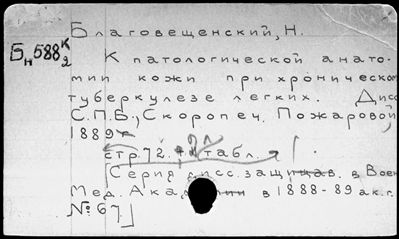 Благовещенский, Н.
Бн588 к/2
К патологической анато-
мии кожи при хроническом
туберкулезе легких. Дисс.
С.П.Б., Скоропеч. Пожаровой,
1889г.
стр. 72. + 2 л. табл.
(Серия дисс. защищав. в Воен.
Мед. Академии в 1888-89 ак. г.
№ 67)